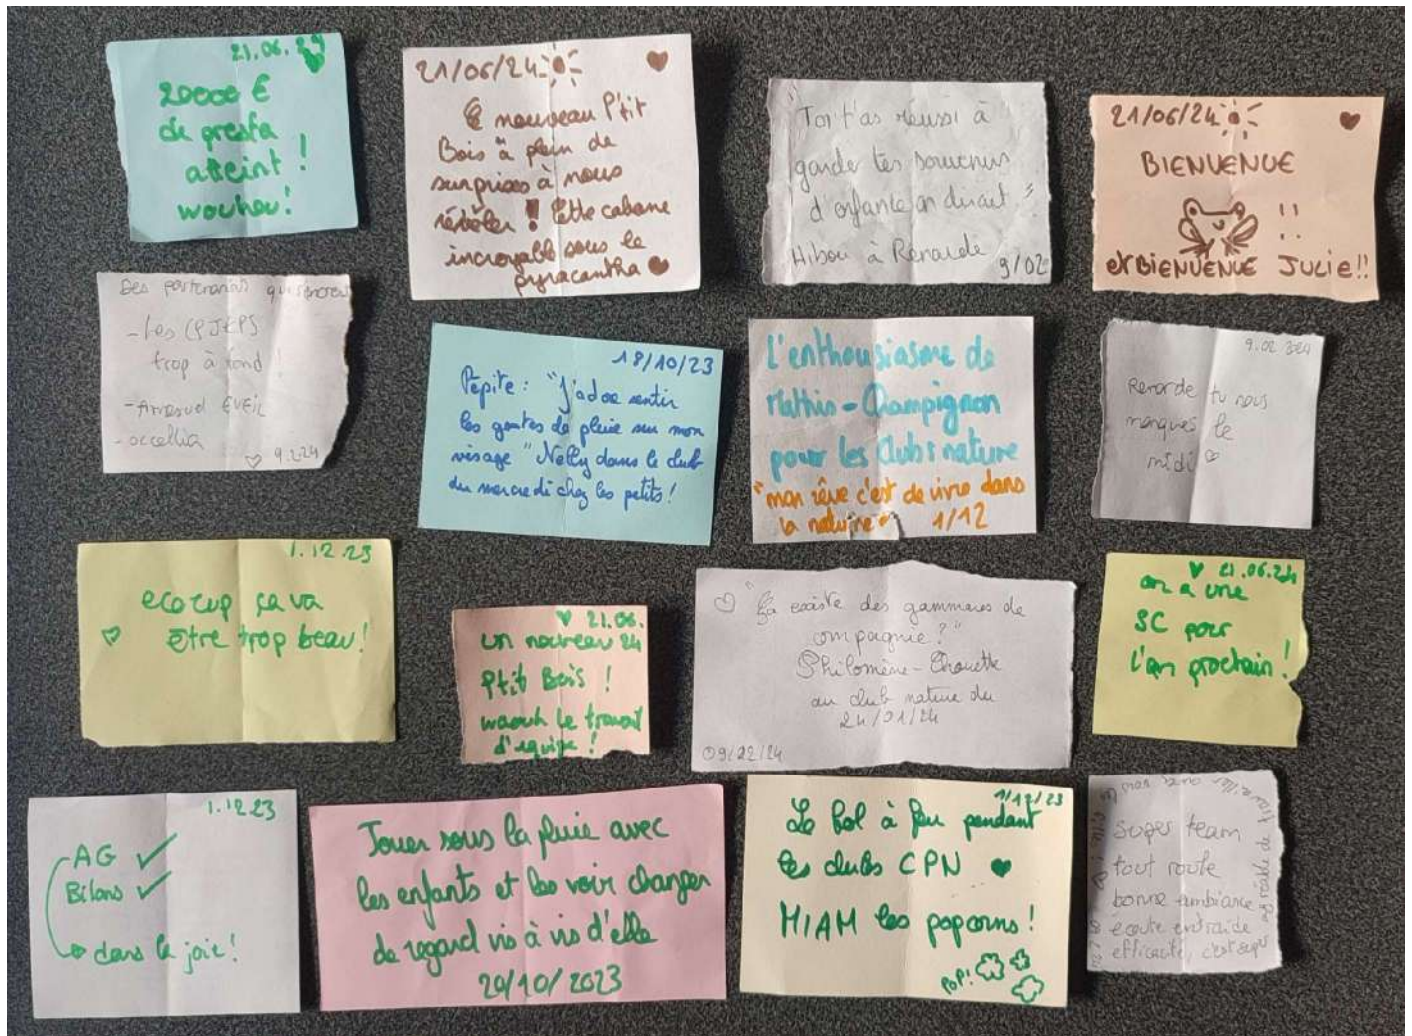 21.06.24
20000 €
de presta
atteint !
wouhou!
21/06/24
Le nouveau P'tit
Bois à plein de
surprises à nous
révéler ! Cette cabane
incroyable sous le
pyracantha
"Toi t'as réussi à
garder tes souvenirs
d'enfance on dirait"
Hibou à Renarde
9/02
21/06/24
BIENVENUE
!!
et BIENVENUE JULIE!!
Des partenariats
- Les CPJEPS
trop à fond !
- EVEIL
- occellia
9.2.24
18/10/23
Pépite : "J'adore sentir
les goutes de pluie sur mon
visage" Nelly dans le club
du mercredi chez les petits !
L'enthousiasme de
Mathis-Champignon
pour les clubs nature
"mon rêve c'est de vivre dans
la nature" 1/12
9.02
Renarde tu nous
manques le
midi
1.12.23
ecocup ça va
être trop beau!
21.06.
24
un nouveau
Ptit Bois !
waouh le travail
d'équipe !
"Ça existe des gammares de
compagnie ?"
Philomène-Chouette
au club nature du
24/01/24
21.06.24
on a une
SC pour
l'an prochain !
1.12.23
AG
Bilans
dans la joie!
Jouer sous la pluie avec
les enfants et les voir changer
de regard vis à vis d'elle
20/10/2023
1/12/23
Le bol à feu pendant
les clubs CPN
MIAM les popcorns !
POP!
super team
tout roule
bonne ambiance
écoute entraide
efficacité, c'est super
agréable de travailler avec vous